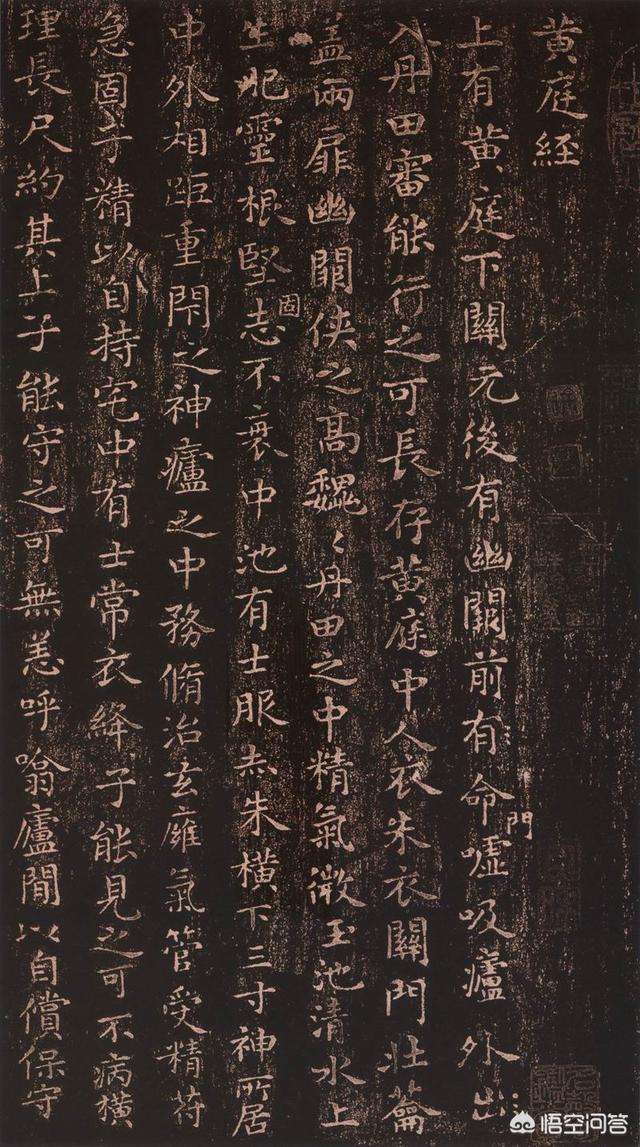 黄庭經
上有黄庭下關元後有幽闕前有命門嘘吸廬外出
入丹田審能行之可長存黄庭中人衣朱衣關門壯蘥
盖兩扉幽闕俠之高魏〻丹田之中精氣微玉池清水上
生肥靈根堅固志不衰中池有士服赤朱橫下三寸神所居
中外相距重閇之神廬之中務脩治玄廱氣管受精苻
急固子精以自持宅中有士常衣絳子能見之可不病橫
理長尺約其上子能守之可無恙呼噏廬間以自償保守
悟空问答